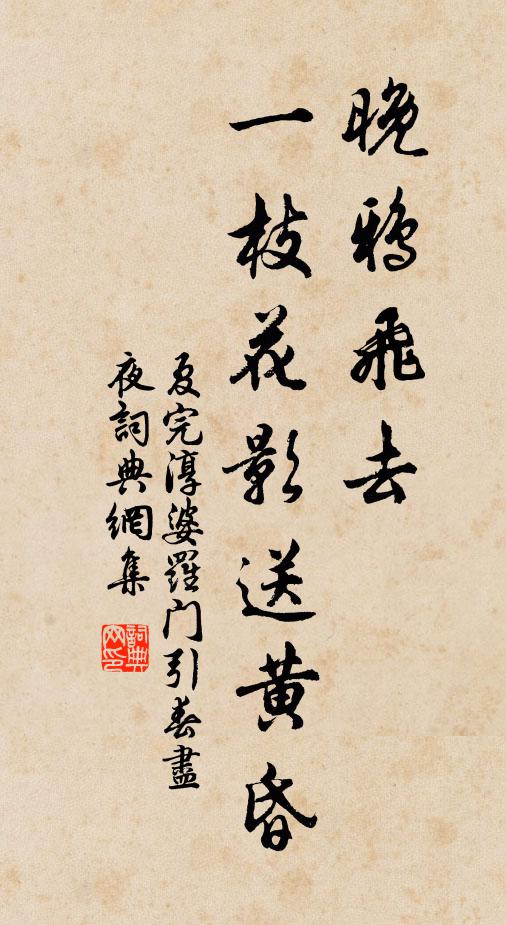 晚鴉飛去
一枝花影送黃昏
夏完淳婆羅门引春盡
夜詞典網集
詞典
网印